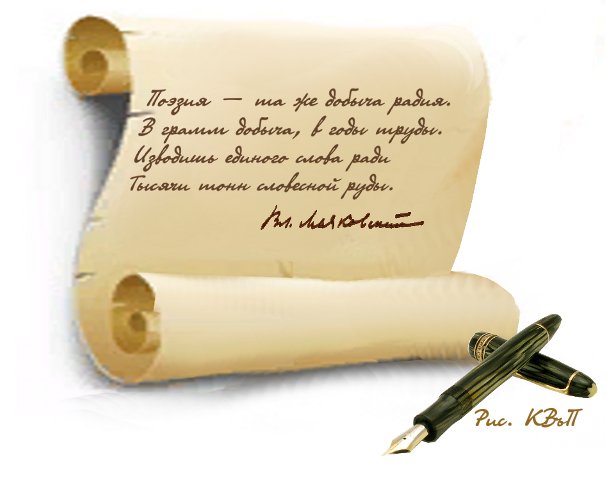 Поэзия — та же добыча радия.
В грамм добыча, в годы труды.
Изводишь единого слова ради
Тысячи тонн словесной руды.
Вл. Маяковский
Рис. КВъП